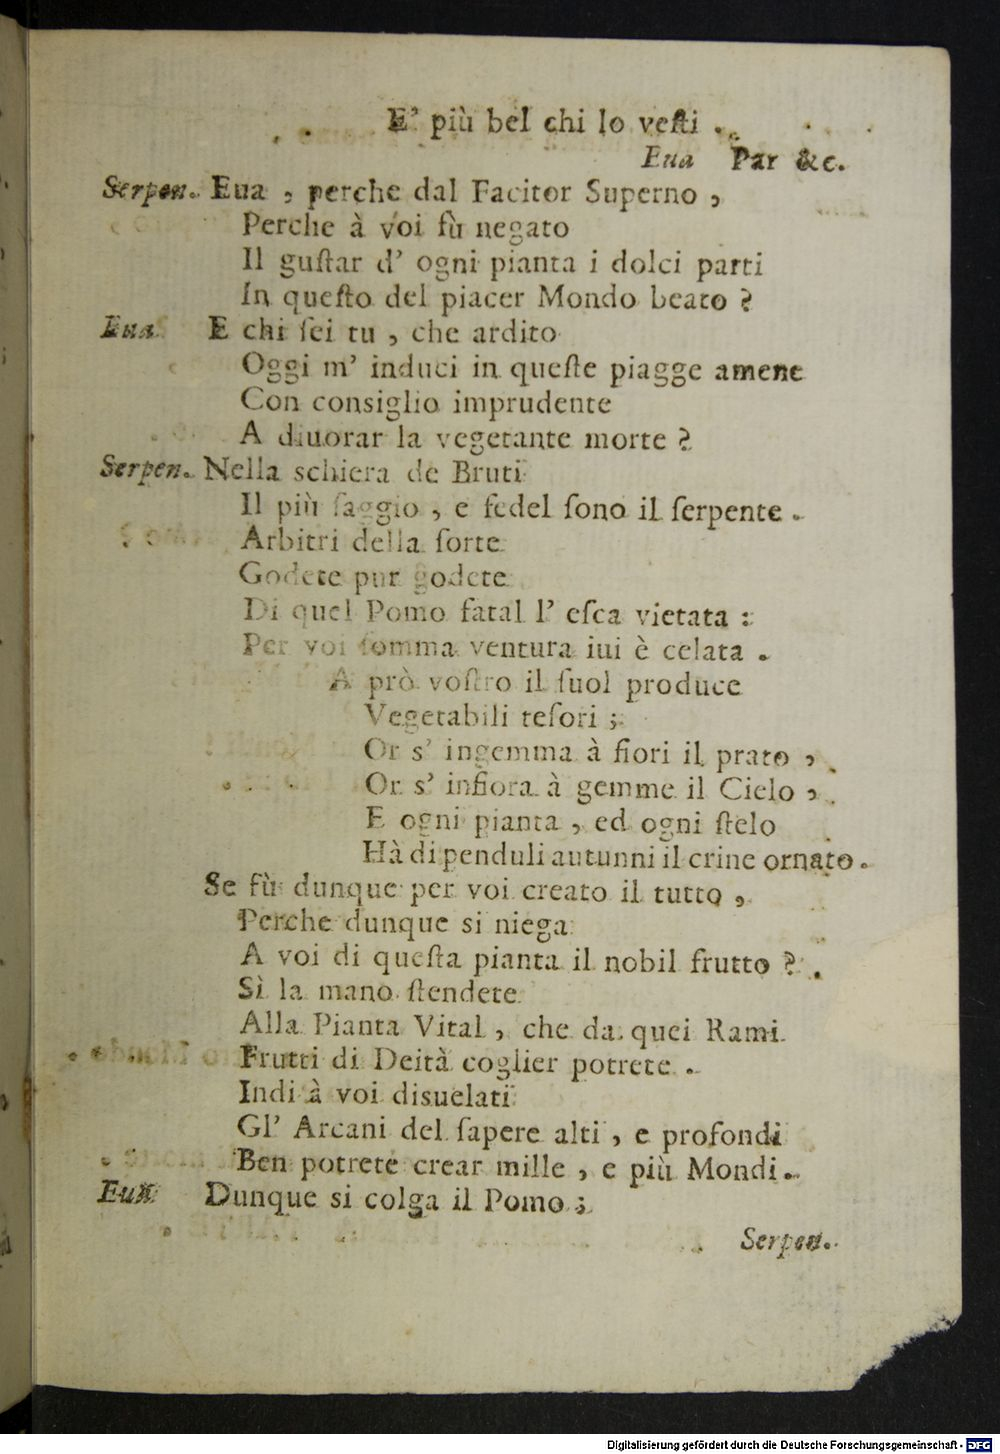 E' più bel chi lo veſti .
Eua Par &c.
Serpen. Eua , perche dal Facitor Superno ,
Perche à voi fù negato
Il guſtar d' ogni pianta i dolci parti
In queſto del piacer Mondo beato ?
Eua E chi ſei tu , che ardito
Oggi m' induci in queſte piagge amene
Con consiglio imprudente
A diuorar la vegetante morte ?
Serpen. Nella schiera de Bruti
Il più ſaggio , e fedel ſono il ſerpente .
Arbitri della ſorte
Godete pur godete
Di quel Pomo fatal l' eſca vietata :
Per voi ſomma ventura iui è celata .
A prò voſtro il ſuol produce
Vegetabili teſori ;
Or s' ingemma à fiori il prato ,
Or s' infiora à gemme il Cielo ,
E ogni pianta , ed ogni ſtelo
Hà di penduli autunni il crine ornato .
Se fù dunque per voi creato il tutto ,
Perche dunque si niega
A voi di queſta pianta il nobil frutto ?
Sì la mano ſtendete
Alla Pianta Vital , che da quei Rami
Frutti di Deità coglier potrete .
Indi à voi disuelati
Gl' Arcani del ſapere alti , e profondi
Ben potrete crear mille , e più Mondi .
Eua Dunque si colga il Pomo ;
Serpen.
Digitalisierung gefördert durch die Deutsche Forschungsgemeinschaft - DFG